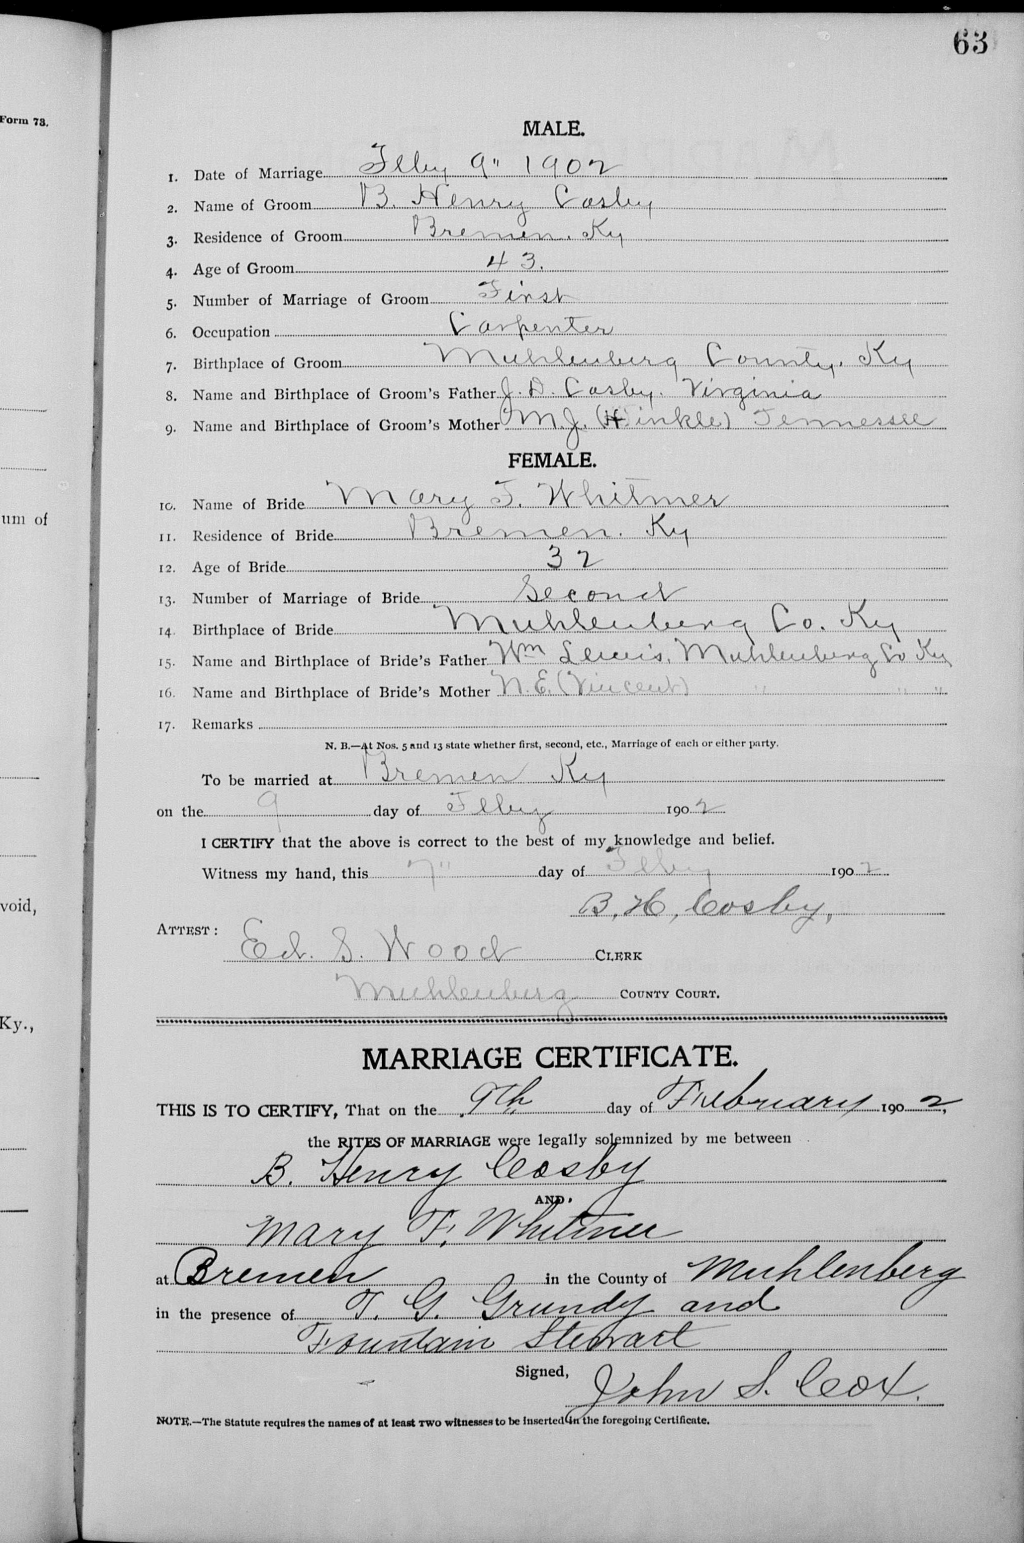 63
Form 73.
MALE.
1. Date of Marriage Feby 9" 1902
2. Name of Groom B. Henry Cosby
3. Residence of Groom Bremen. Ky
4. Age of Groom 43.
5. Number of Marriage of Groom First
6. Occupation Carpenter
7. Birthplace of Groom Muhlenberg County. Ky
8. Name and Birthplace of Groom's Father J. D. Cosby. Virginia
9. Name and Birthplace of Groom's Mother M. J. (Hinkle) Tennessee
FEMALE.
10. Name of Bride Mary F. Whitmer
um of
11. Residence of Bride Bremen. Ky
12. Age of Bride 32
13. Number of Marriage of Bride Second
14. Birthplace of Bride Muhlenberg Co. Ky
15. Name and Birthplace of Bride's Father Wm Lewis, Muhlenberg Co Ky
16. Name and Birthplace of Bride's Mother N. E. (Vincent) " " "
17. Remarks
N. B.—At Nos. 5 and 13 state whether first, second, etc., Marriage of each or either party.
To be married at Bremen Ky
on the 9 day of Feby 1902
I CERTIFY that the above is correct to the best of my knowledge and belief.
Witness my hand, this 7" day of Feby 1902
void,
B. H. Cosby,
ATTEST:
Ed. S. Wood CLERK
Muhlenberg COUNTY COURT.
Ky.,
MARRIAGE CERTIFICATE.
THIS IS TO CERTIFY, That on the 9th day of February 1902,
the RITES OF MARRIAGE were legally solemnized by me between
B. Henry Cosby
AND,
Mary F. Whitmer
at Bremen in the County of Muhlenberg
in the presence of T. G. Grundy and
Fountain Stewart
Signed, John S. Cox.
NOTE.—The Statute requires the names of at least TWO witnesses to be inserted in the foregoing Certificate.